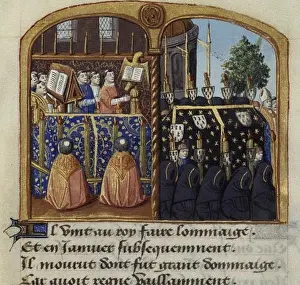 Il vint au roy faire lommaige.
Et en Januet subsequemment.
Il mourut dont fut grant dommaige.
Car auoit regne vaillamment.